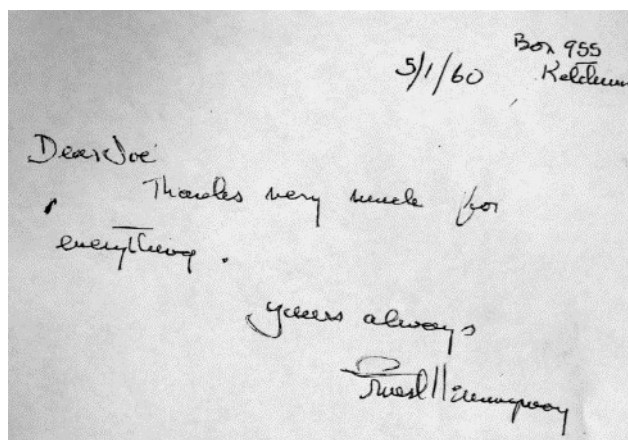 Box 955
5/1/60 Ketchum
Dear Joe
Thanks very much for
everything.
yours always
Ernest Hemingway